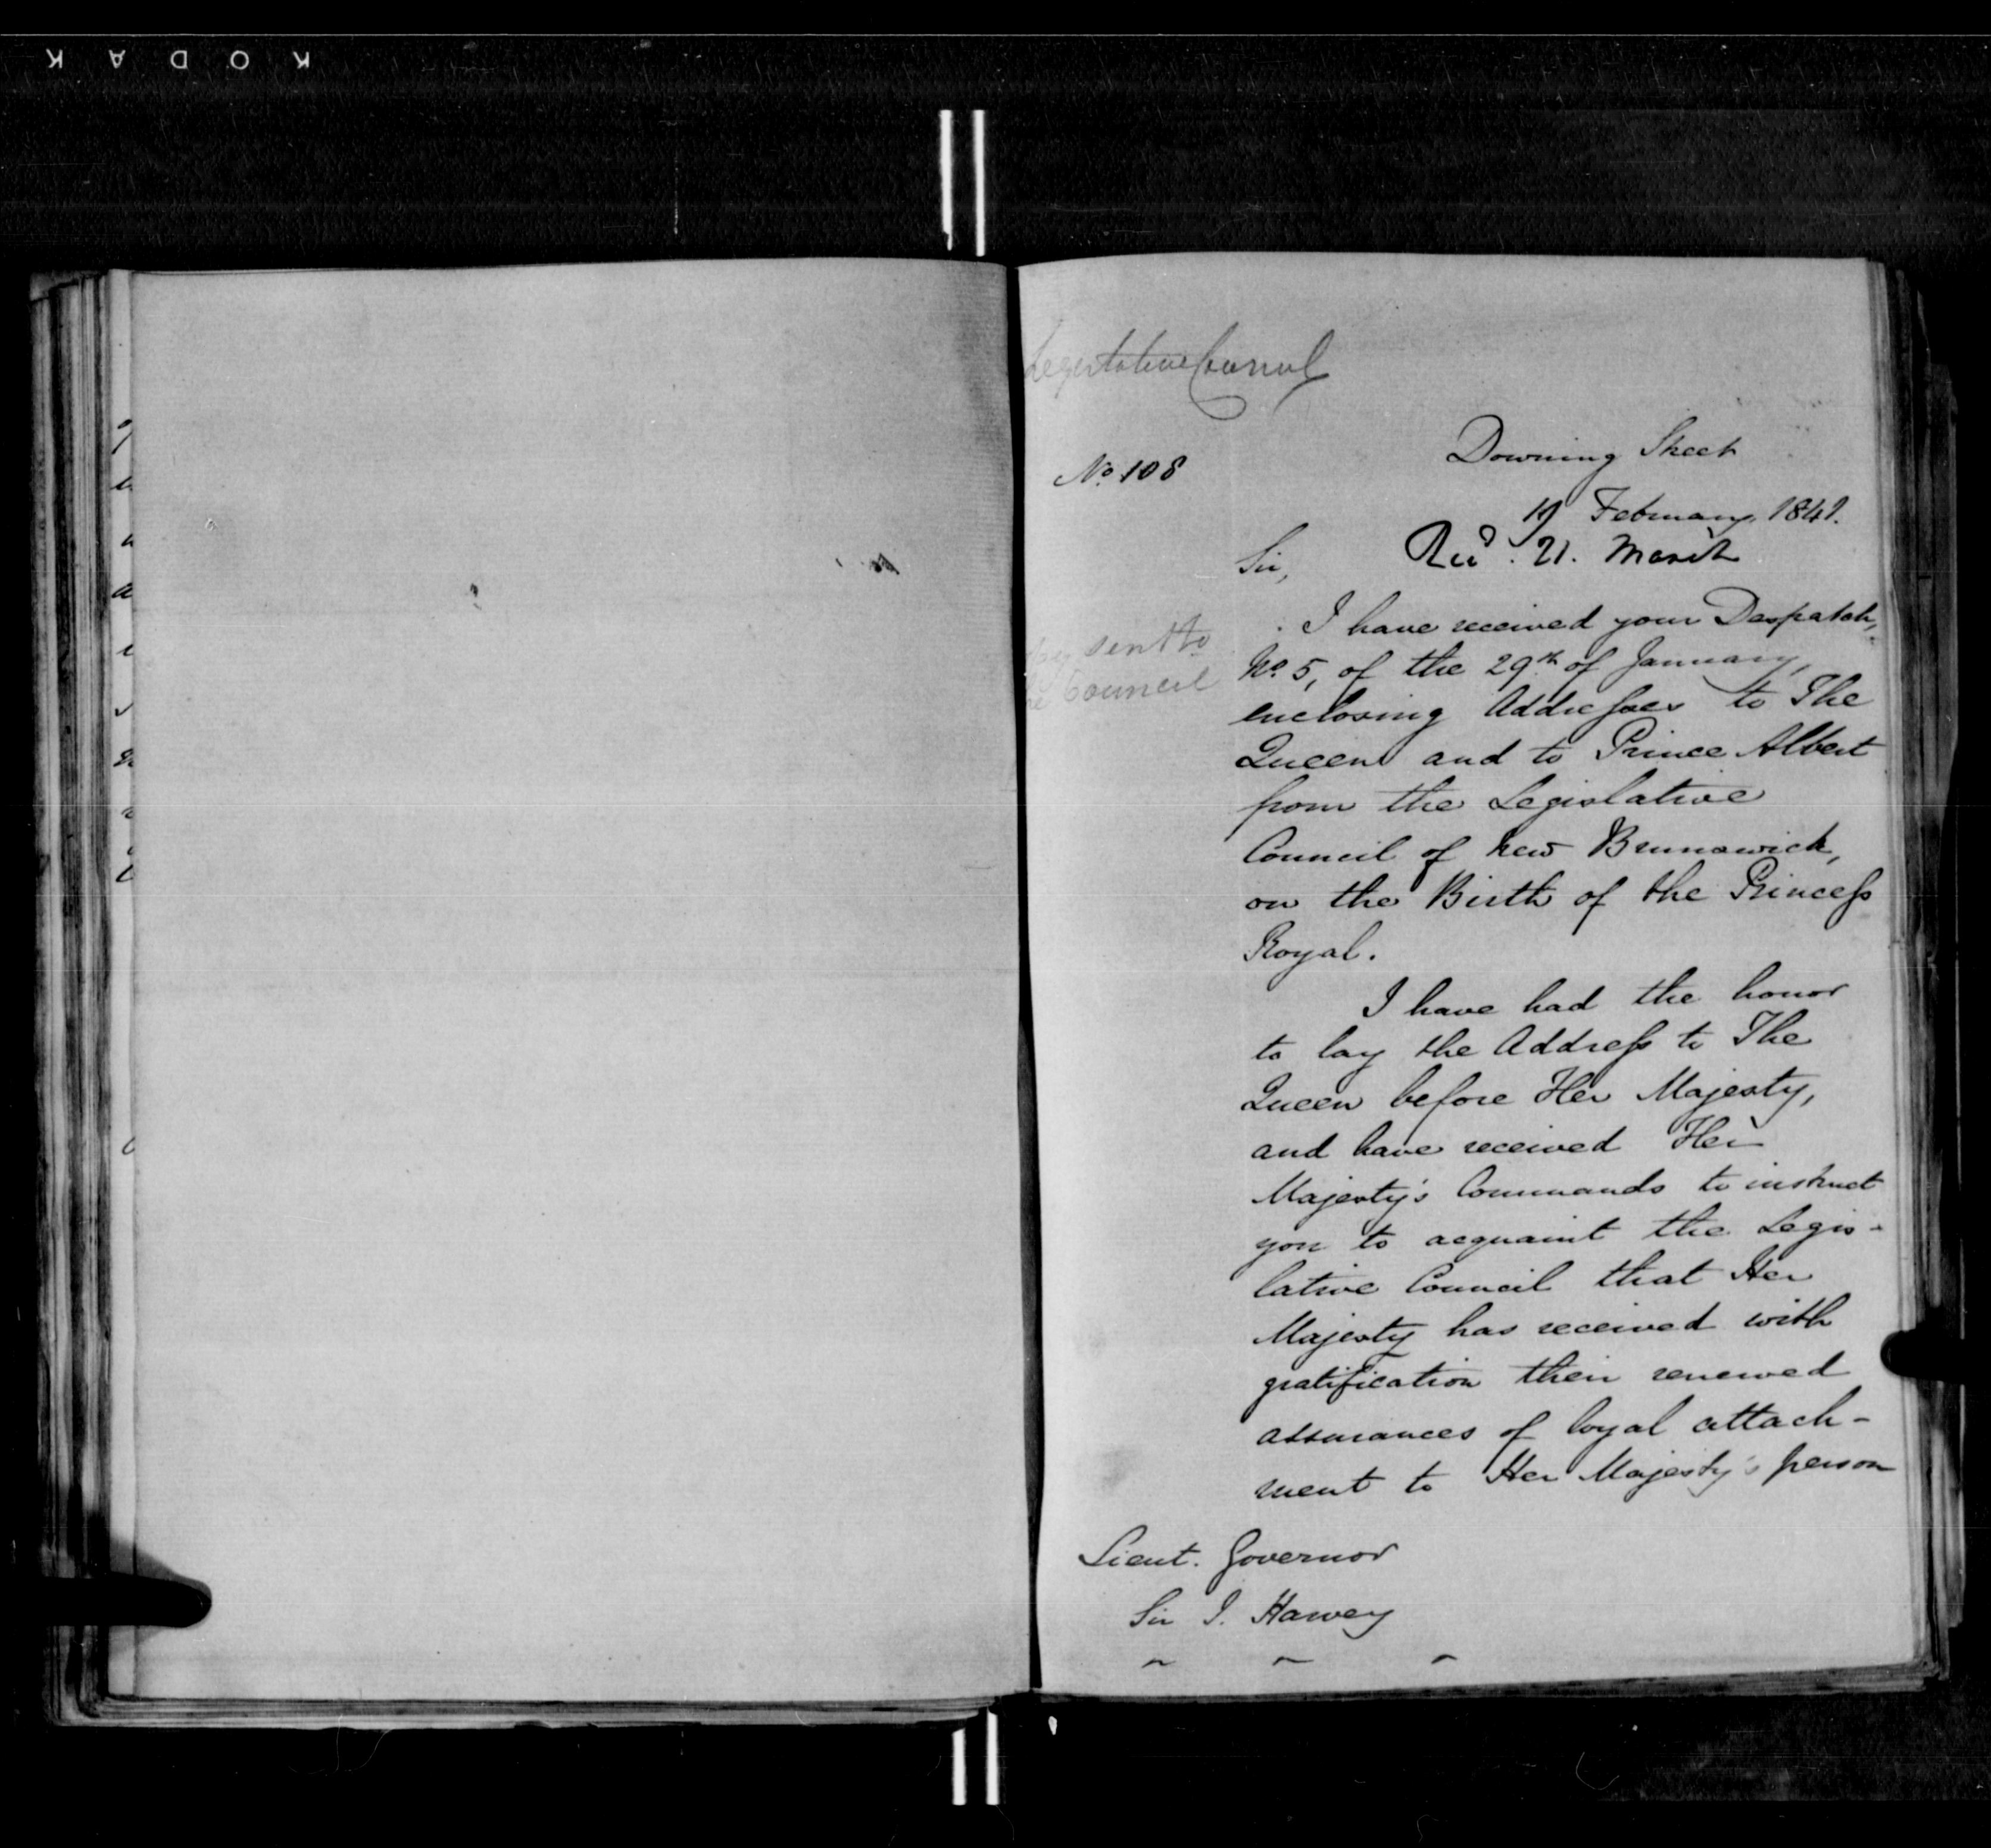 KODAK
Legislative Council
Downing Street
No. 108
19 February 1841.
Recd. 21. March
Sir,
I have received your Despatch,
sent to
No. 5, of the 29th of January,
Council
enclosing Addresses to The
Queen and to Prince Albert
from the Legislative
Council of New Brunswick,
on the Birth of the Princess
Royal.
I have had the honor
to lay the Address to The
Queen before Her Majesty,
and have received Her
Majesty's Commands to instruct
you to acquaint the Legis-
lative Council that Her
Majesty has received with
gratification their renewed
assurances of loyal attach-
ment to Her Majesty's person
Lieut. Governor
Sir J. Harvey